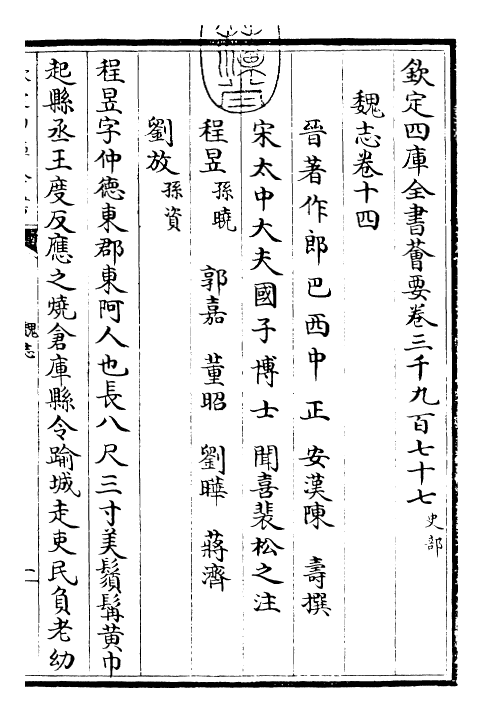 欽定四庫全書薈要卷三千九百七十七 史部
魏志卷十四
晉著作郎巴西中正安漢陳壽撰
宋太中大夫國子博士聞喜裴松之注
程昱 孫曉 郭嘉 董昭 劉曄 蔣濟
劉放 孫資
程昱字仲德東郡東阿人也長八尺三寸美鬚髯黃巾
起縣丞王度反應之燒倉庫縣令踰城走吏民負老幼
魏志